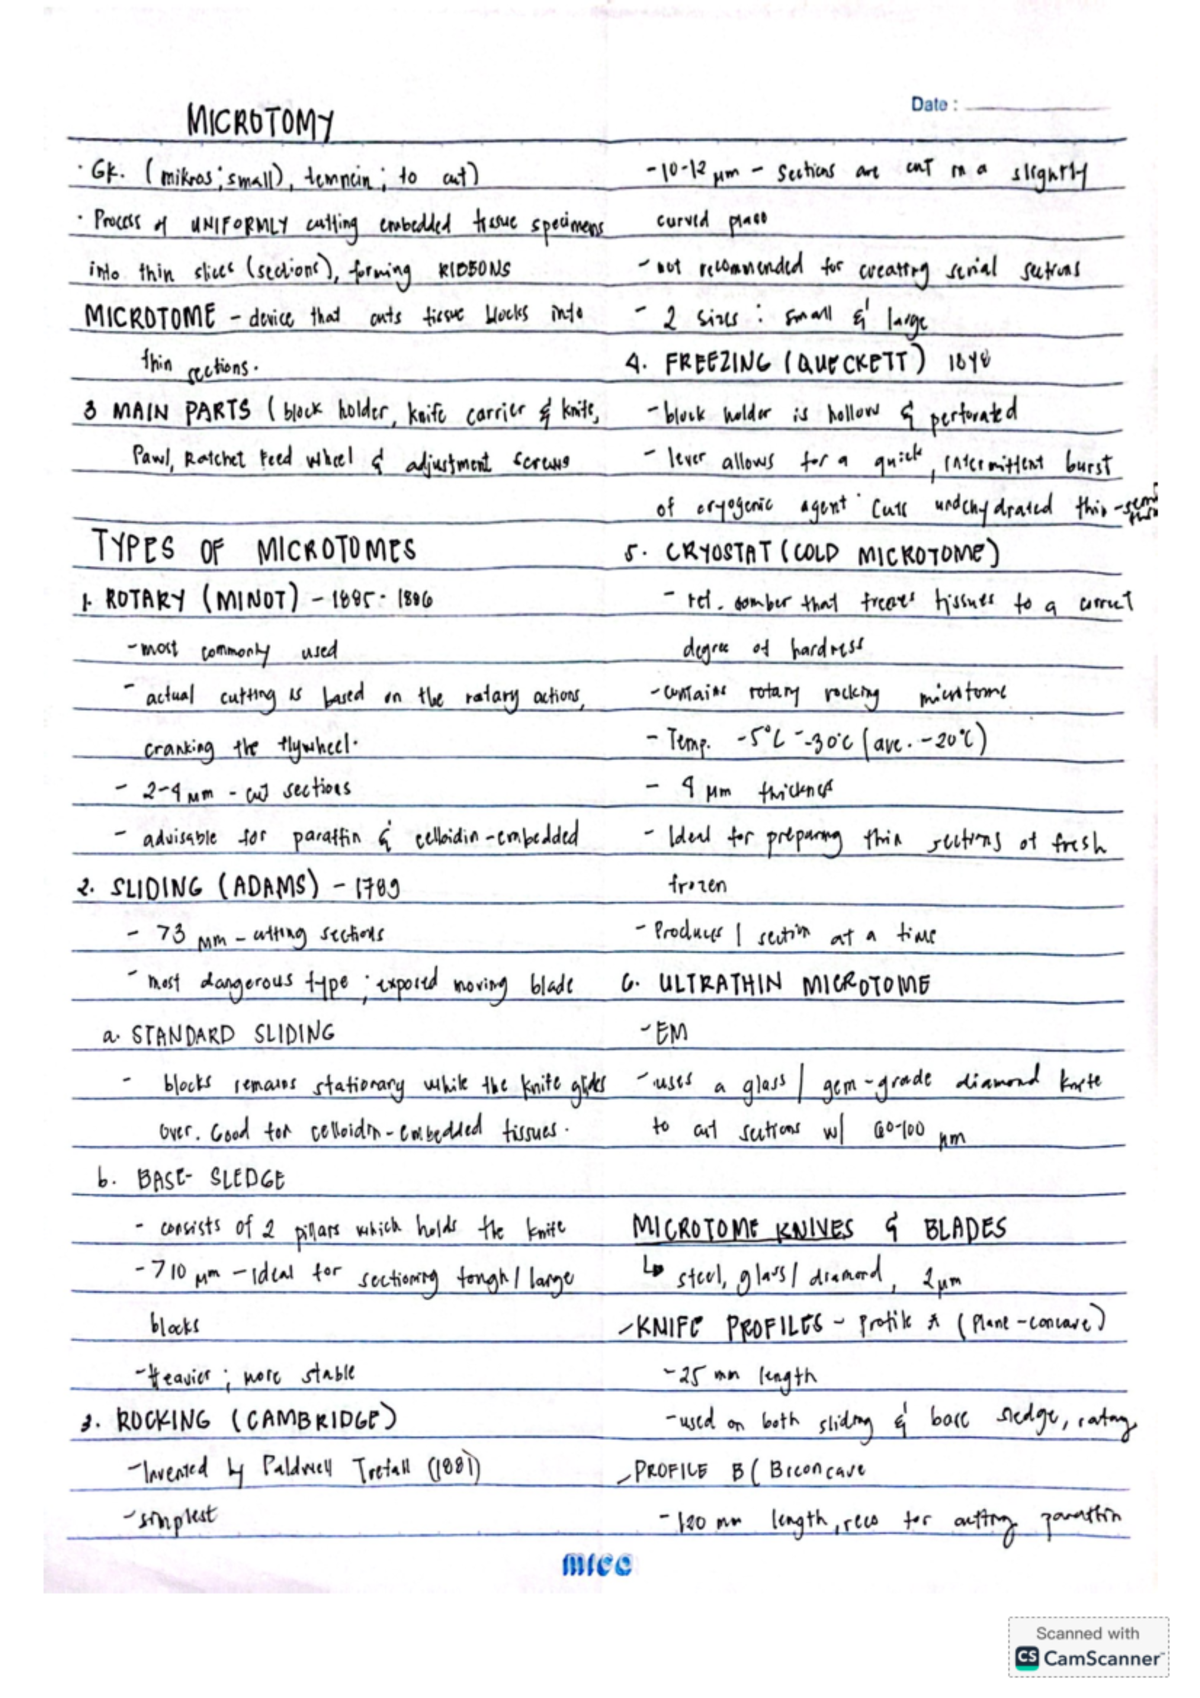 MICROTOMY
· Gk. (mikros; small), temnein; to cut)
· Process of UNIFORMLY cutting embedded tissue specimens
into thin slices (sections), forming RIBBONS
MICROTOME - device that cuts tissue blocks into
thin sections.
3 MAIN PARTS (block holder, knife carrier & knife,
Pawl, Ratchet Feed Wheel & adjustment screws
TYPES OF MICROTOMES
1. ROTARY (MINOT) - 1885-1886
- most commonly used
- actual cutting is based on the rotary actions,
cranking the flywheel.
- 2-4 µm - cut sections
- advisable for paraffin & celloidin-embedded
2. SLIDING (ADAMS) - 1789
- 73 µm - cutting sections
- most dangerous type; exposed moving blade
a. STANDARD SLIDING
- blocks remains stationary while the knife glides
over. Good for celloidin-embedded tissues.
b. BASE-SLEDGE
- consists of 2 pillars which holds the knife
- 710 µm - ideal for sectioning tough/large
blocks
- Heavier; more stable
3. ROCKING (CAMBRIDGE)
- Invented by Paldwell Trefall (1881)
- simplest
Date :
- 10-12 µm - sections are cut in a slightly
curved plane
- not recommended for creating serial sections
- 2 sizes: small & large
4. FREEZING (QUECKETT) 1848
- block holder is hollow & perforated
- lever allows for a quick, intermittent burst
of cryogenic agent. Cuts undehydrated thin-semi
5. CRYOSTAT (COLD MICROTOME)
- ref. that freezes tissues to a correct
degree of hardness
- contains rotary rocking microtome
- Temp. -5°C - -30°C (ave. -20°C)
- 4 µm thickness
- Ideal for preparing thin sections of fresh
frozen
- Produces 1 section at a time
6. ULTRATHIN MICROTOME
- EM
- uses a glass/gem-grade diamond knife
to cut sections w/ 60-100 nm
MICROTOME KNIVES & BLADES
↳ steel, glass/diamond, 2µm
✓KNIFE PROFILES - Profile A (Plane-concave)
- 25 mm length
- used on both sliding & base sledge, rotary
✓PROFILE B (Biconcave
- 120 mm length, reco for cutting paraffin
mico
Scanned with
CS CamScanner